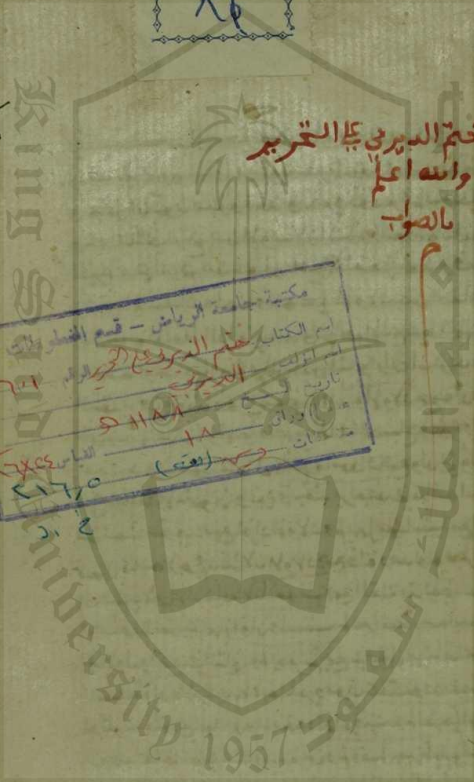 ختم الديربي على التحرير
والله اعلم
بالصواب
م
مكتبة جامعة الرياض - قسم المخطوطات
اسم الكتاب ختم الديربي على التحرير الرقم
اسم المؤلف الديربي
تاريخ النسخ ١١٨٨ هـ
عدد الأوراق ١٨ القياس
ملاحظات (فقه)
٢١٦٫٥
King Saud University 1957